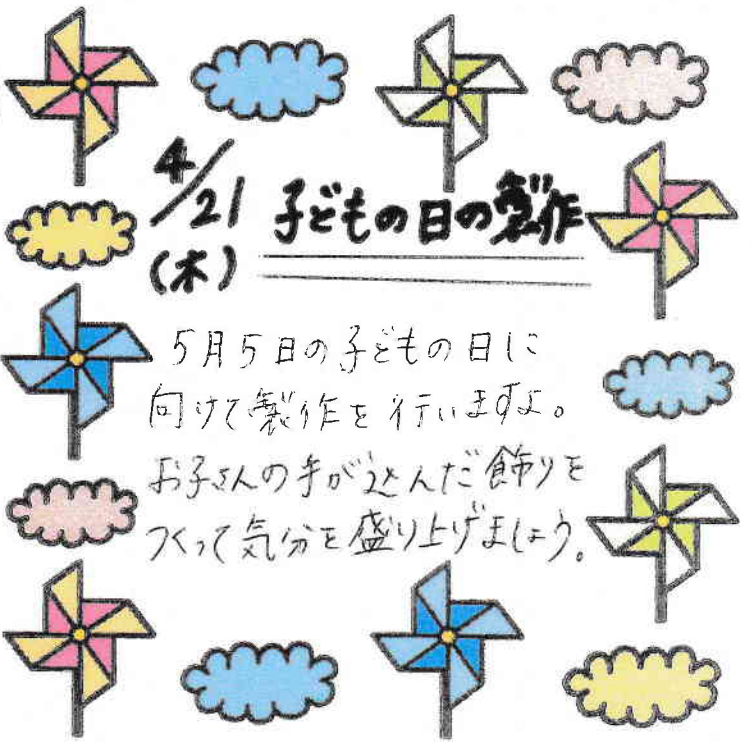 4/21
(木)
子どもの日の製作
5月5日の子どもの日に
向けて製作を行いますよ。
お子さんの手が込んだ飾りを
つくって気分を盛り上げましょう。